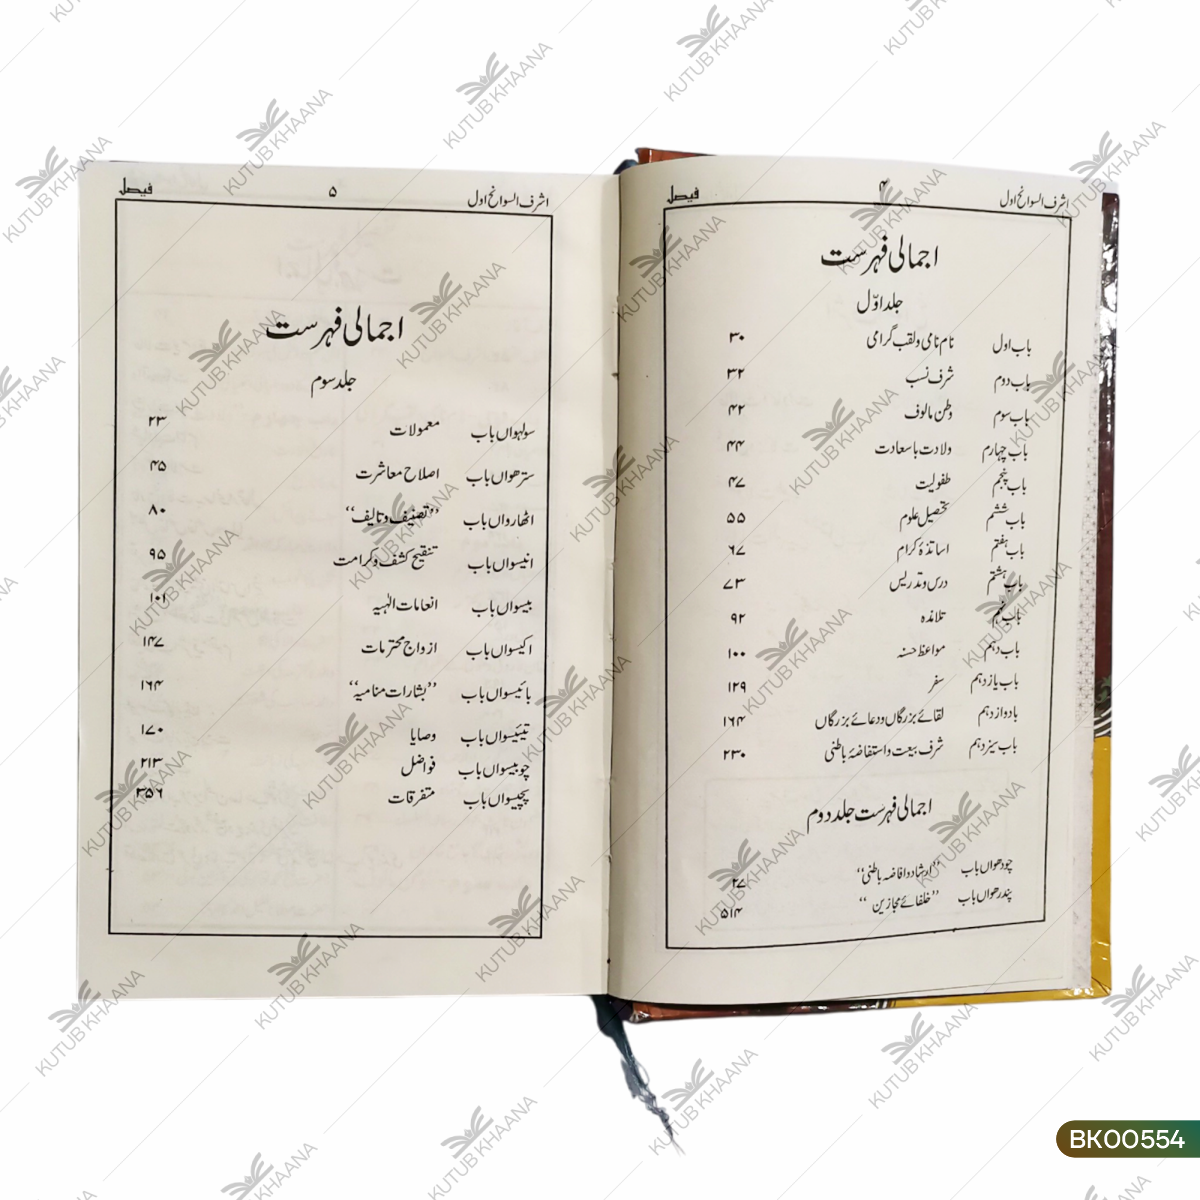 اشرف السوانح اول ۴ فیصل
اجمالی فہرست
جلد اوّل
باب اول نام نامی و لقب گرامی ۳۰
باب دوم شرف نسب ۳۲
باب سوم وطن مالوف ۴۲
باب چہارم ولادت باسعادت ۴۴
باب پنجم طفولیت ۴۷
باب ششم تحصیل علوم ۵۵
باب ہفتم اساتذۂ کرام ۶۷
باب ہشتم درس و تدریس ۷۳
باب نہم تلامذہ ۹۲
باب دہم مواعظ حسنہ ۱۰۰
باب یازدہم سفر ۱۲۹
باب دوازدہم لقائے بزرگاں و دعائے بزرگاں ۱۶۴
باب سیزدہم شرف بیعت و استفاضۂ باطنی ۲۳۰
اجمالی فہرست جلد دوم
چودھواں باب ”ارشاد و افاضہ باطنی“ ۲۷
پندرھواں باب ”خلفائے مجازین“ ۵۱۴
اشرف السوانح اول ۵ فیصل
اجمالی فہرست
جلد سوم
سولہواں باب معمولات ۲۳
سترھواں باب اصلاح معاشرت ۴۵
اٹھارواں باب ”تصنیف و تالیف“ ۸۰
انیسواں باب تنقیح کشف و کرامت ۹۵
بیسواں باب انعامات الٰہیہ ۱۰۱
اکیسواں باب ازواج محترمات ۱۴۷
بائیسواں باب ”بشارات منامیہ“ ۱۶۴
تیئیسواں باب وصایا ۱۷۰
چوبیسواں باب فواضل ۲۱۳
پچیسواں باب متفرقات ۳۵۶
KUTUB KHAANA
BK00554